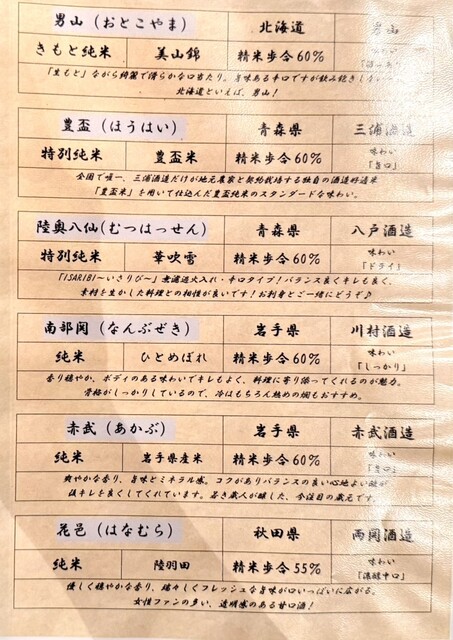 男山（おとこやま） 北海道 男山
きもと純米 美山錦 精米歩合60% 味わい
「生もと」ながら綺麗で滑らかな口当たり。旨味ある辛口ですが飲み飽きしない
北海道といえば、男山！
豊盃（ほうはい） 青森県 三浦酒造
特別純米 豊盃米 精米歩合60% 味わい
「旨口」
全国で唯一、三浦酒造だけが地元農家と契約栽培する独自の酒造好適米
「豊盃米」を用いて仕込んだ豊盃純米のスタンダードな味わい。
陸奥八仙(むつはっせん) 青森県 八戸酒造
特別純米 華吹雪 精米歩合60% 味わい
「ドライ」
「ISARIBI～いさりび～」無濾過火入れ・辛口タイプ！バランス良くキレも良く、
素材を生かした料理との相性が良いです！お刺身とご一緒にどうぞ♪
南部関（なんぶぜき） 岩手県 川村酒造
純米 ひとめぼれ 精米歩合60% 味わい
「しっかり」
香り穏やか。ボディのある味わいでキレもよく、料理に寄り添ってくれるのが魅力。
骨格がしっかりしているので、冷はもちろん熱めの燗もおすすめ。
赤武（あかぶ） 岩手県 赤武酒造
純米 岩手県産米 精米歩合60% 味わい
「旨口」
爽やかな香り、旨味とミネラル感。コクがありバランスの良い心地よい酸が
後キレを良くしてくれています。若き蔵人が醸した、今注目の蔵元です。
花邑（はなむら） 秋田県 両関酒造
純米 陸羽田 精米歩合55% 味わい
「濃醇中口」
優しく穏やかな香り、瑞々しくフレッシュな旨味が口いっぱいに広がる。
女性ファンの多い、透明感のある甘口酒！